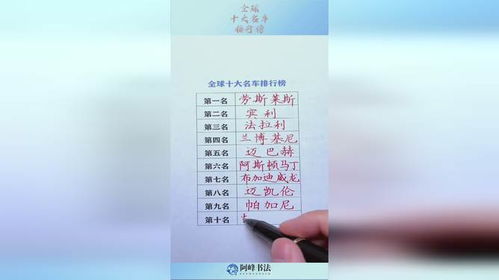 全球
十大名车
排行榜
全球十大名车排行榜
第一名 劳斯莱斯
第二名 宾利
第三名 法拉利
第四名 兰博基尼
第五名 迈巴赫
第六名 阿斯顿马丁
第七名 布加迪威龙
第八名 迈凯伦
第九名 帕加尼
第十名
阿峰书法